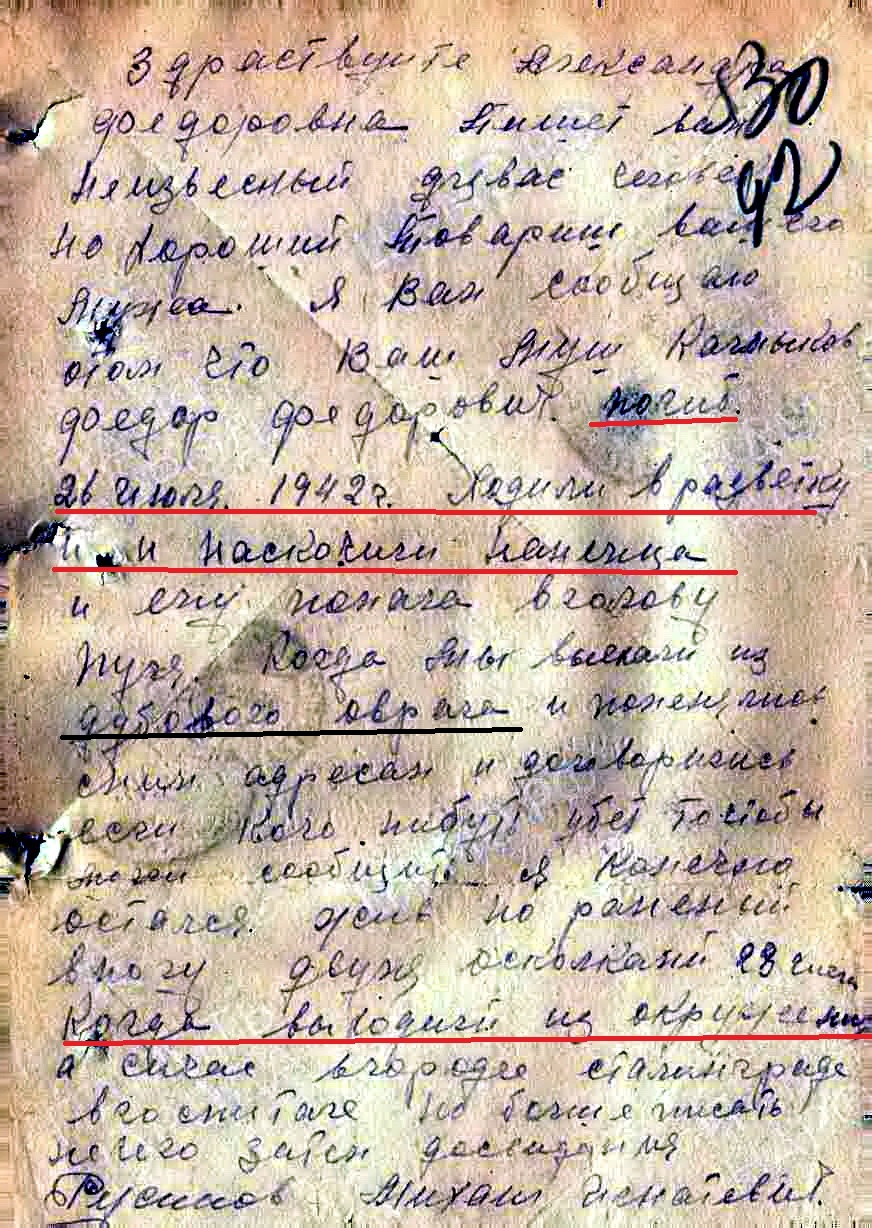 Здраствуйте Александра
федоровна Пишет вам
Неизвесный длявас человек
но Хороший товарищ вашего
мужа. Я Вам сообщаю
отом что Ваш муш Калмыков
федор федоровит. погиб.
26 июля 1942 г. Ходили в разветку
и наскочили нанемца
и ему попала вголову
пуля. Когда мы выехали из
дубового оврага и поменялись
сним адресам и договорились
если кого нибуть убет тостобы
могли сообщить я Конечно
остался жив но раненый
вногу двумя осколками 23 числа
Когда выходили из окружения
а сичас вгороде сталинграде
вгоспитале но больше писать
нечего затем досвидания
Русинов Михаил игнатевит.
30
92